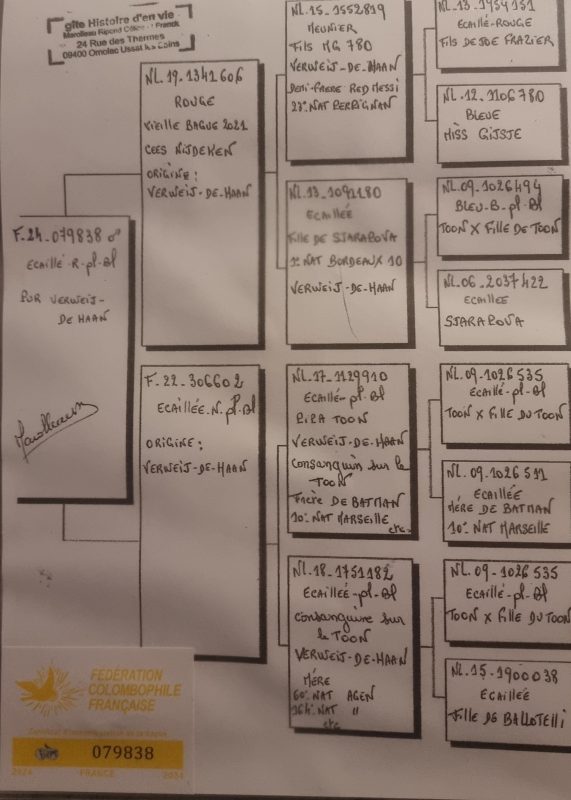 gîte Histoire d'en vie
24 Rue des Thermes
09400 Ornolac Ussat les Bains
F.24-079838 ♂
ECAILLÉ-R-pl-Bl
PUR VERWEIJ-
DE HAAN
NL.19-1341606
ROUGE
VIEILLE BAGUE 2021
CEES NIJDEKEN
ORIGINE:
VERWEIJ-DE-HAAN
F.22-306602
ECAILLÉE-N-pl-Bl
ORIGINE:
VERWEIJ-DE-HAAN
NL.15-1552819
MEUNIER
Fils MG 780
VERWEIJ-DE-HAAN
DEMI-FRERE RED MESSI
23° NAT PERPIGNAN
NL.13-1092180
ECAILLÉE
Fille DE SJARAPOVA
1° NAT BORDEAUX 10
VERWEIJ-DE-HAAN
NL-17-1129910
ECAILLÉ-pl-Bl
PIPA TOON
VERWEIJ-DE-HAAN
Consanguin sur le
TOON
Frère DE BATMAN
10° NAT MARSEILLE
etc.
NL.18-1751182
ECAILLÉE-pl-Bl
Consanguine sur
le TOON
VERWEIJ-DE-HAAN
MÉRE
60° NAT AGEN
164° NAT "
etc
NL.13-1954151
ECAILLÉ-ROUGE
Fils DE JOE FRAZIER
NL.12-3106780
BLEUE
MISS GIJSJE
NL.09-1026494
BLEU-B-pl-Bl
TOON X Fille DE TOON
NL.06-2037422
ECAILLÉE
SJARAPOVA
NL.09-1026535
ECAILLÉ-pl-Bl
TOON X Fille DU TOON
NL.09-1026511
ECAILLÉE
MÉRE DE BATMAN
10° NAT MARSEILLE
NL.09-1026535
ECAILLÉ-pl-Bl
TOON X Fille DU TOON
NL.15-1900038
ECAILLÉE
Fille DE BALLOTELLI
FEDÉRATION
COLOMBOPHILE
FRANÇAISE
079838
2024 FRANCE 2024